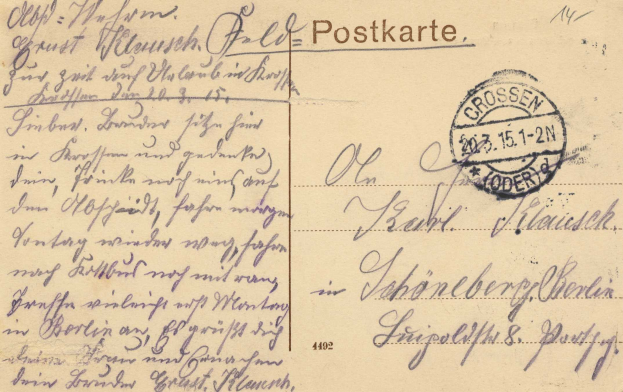 Abs: Wehrm.
Ernst Klausch. Feld=Postkarte.
14-
Zur Zeit auf Urlaub in Krossen
Krossen den 20.3.15.
Lieber Bruder sitze hier
in Krossen und gedenke
dein, Trinke noch eins, auf
den Abschidt, fahre morgen
Sontag wieder weg, fahre
nach Kottbus noch mit ran,
Treffe vieleicht erst Montag
in Berlin an, Es grüßt dich
deine Frau und
dein Bruder Ernst. Klausch.
CROSSEN
20.3.15.1-2N
* (ODER) d
An
Karl. Klausch.
in Schöneberg Berlin
Luipoldstr 8
4492